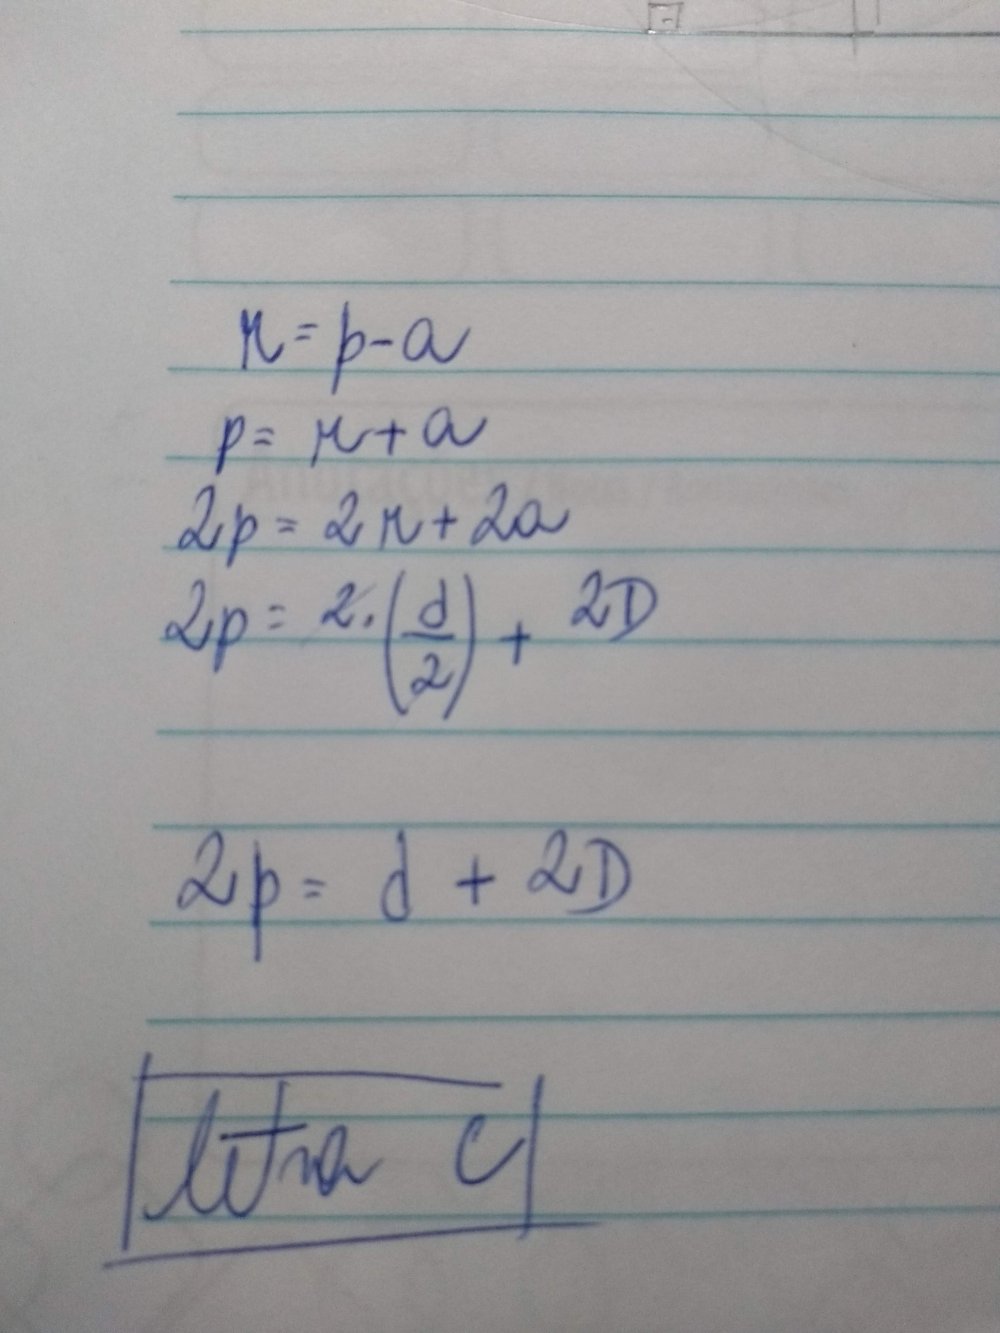 r = p - a
p = r + a
2p = 2r + 2a
2p = 2.(d/2) + 2D
2p = d + 2D
letra c